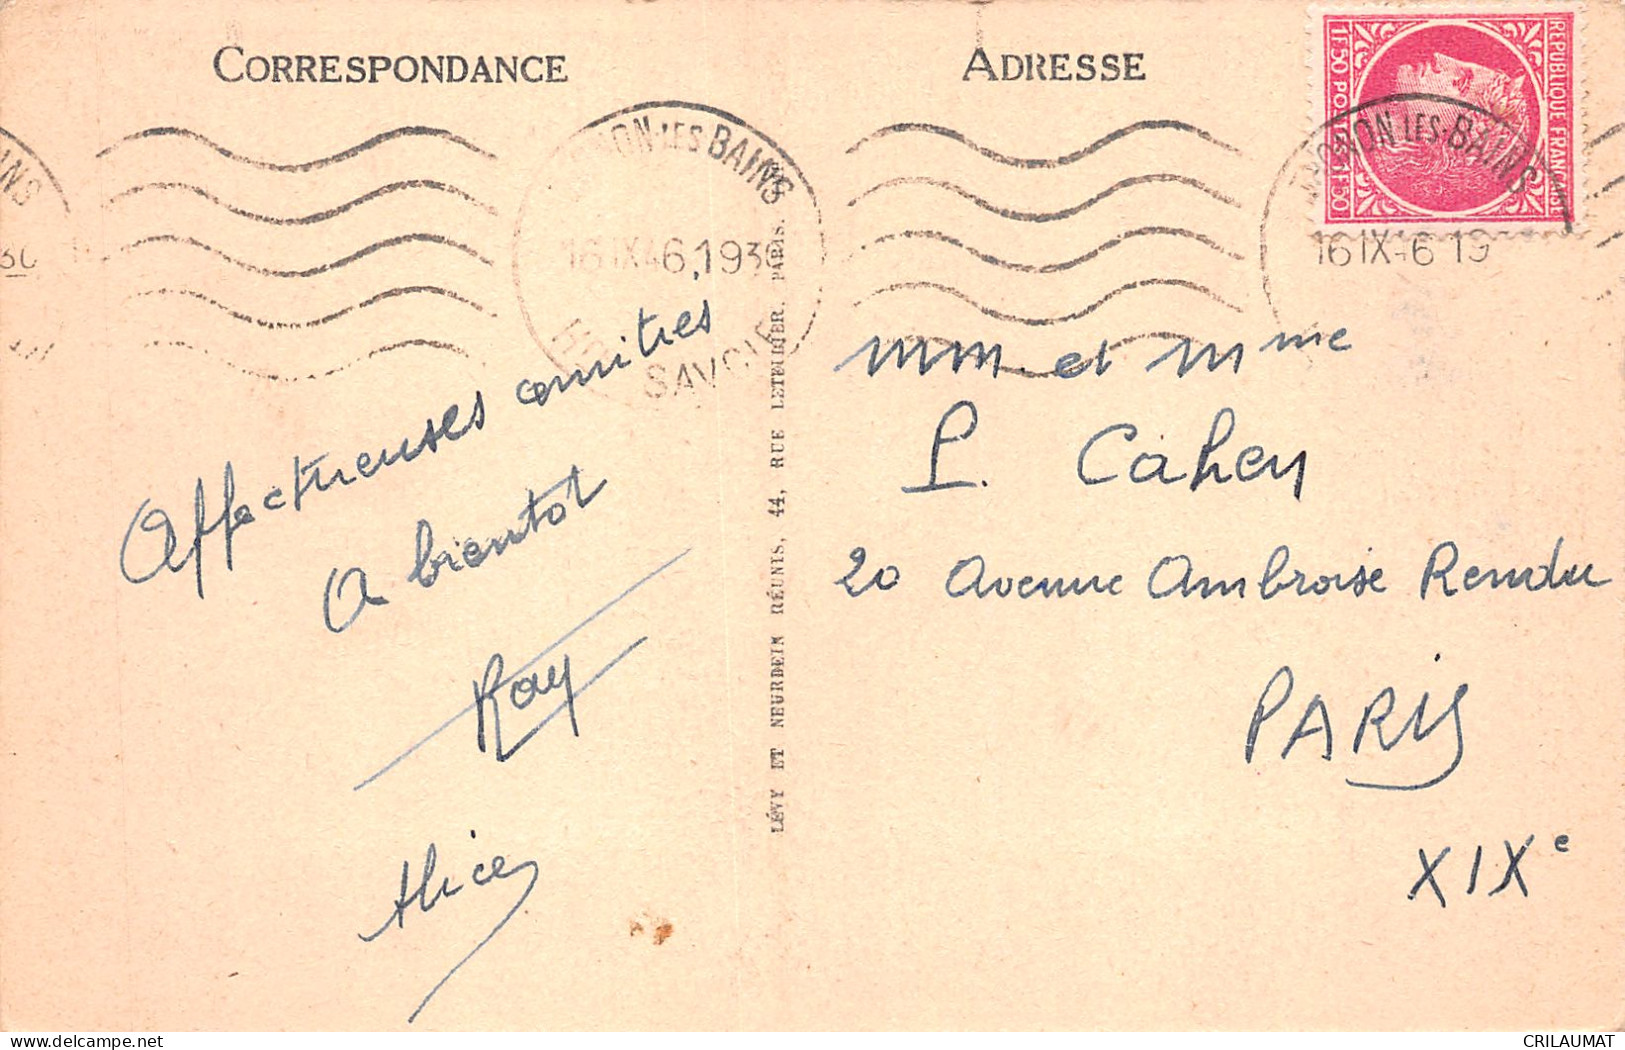 CORRESPONDANCE
ADRESSE
REPUBLIQUE FRANÇAISE
1F50 POSTES 1F50
NON-LES-BAINS
16 IX 46, 1930
SAVOIE
NON-LES-BAINS
16 IX 46 19
INS
30
Affectueuses amities
A bientot
Ray
Alice
LÉVY ET NEURDEIN RÉUNIS, 44, RUE LETELLIER, PARIS.
Mm et Mme
P. Cahen
20 Avenue Ambroise Rendu
PARIS
XIXe
delcampe.net
CRILAUMAT